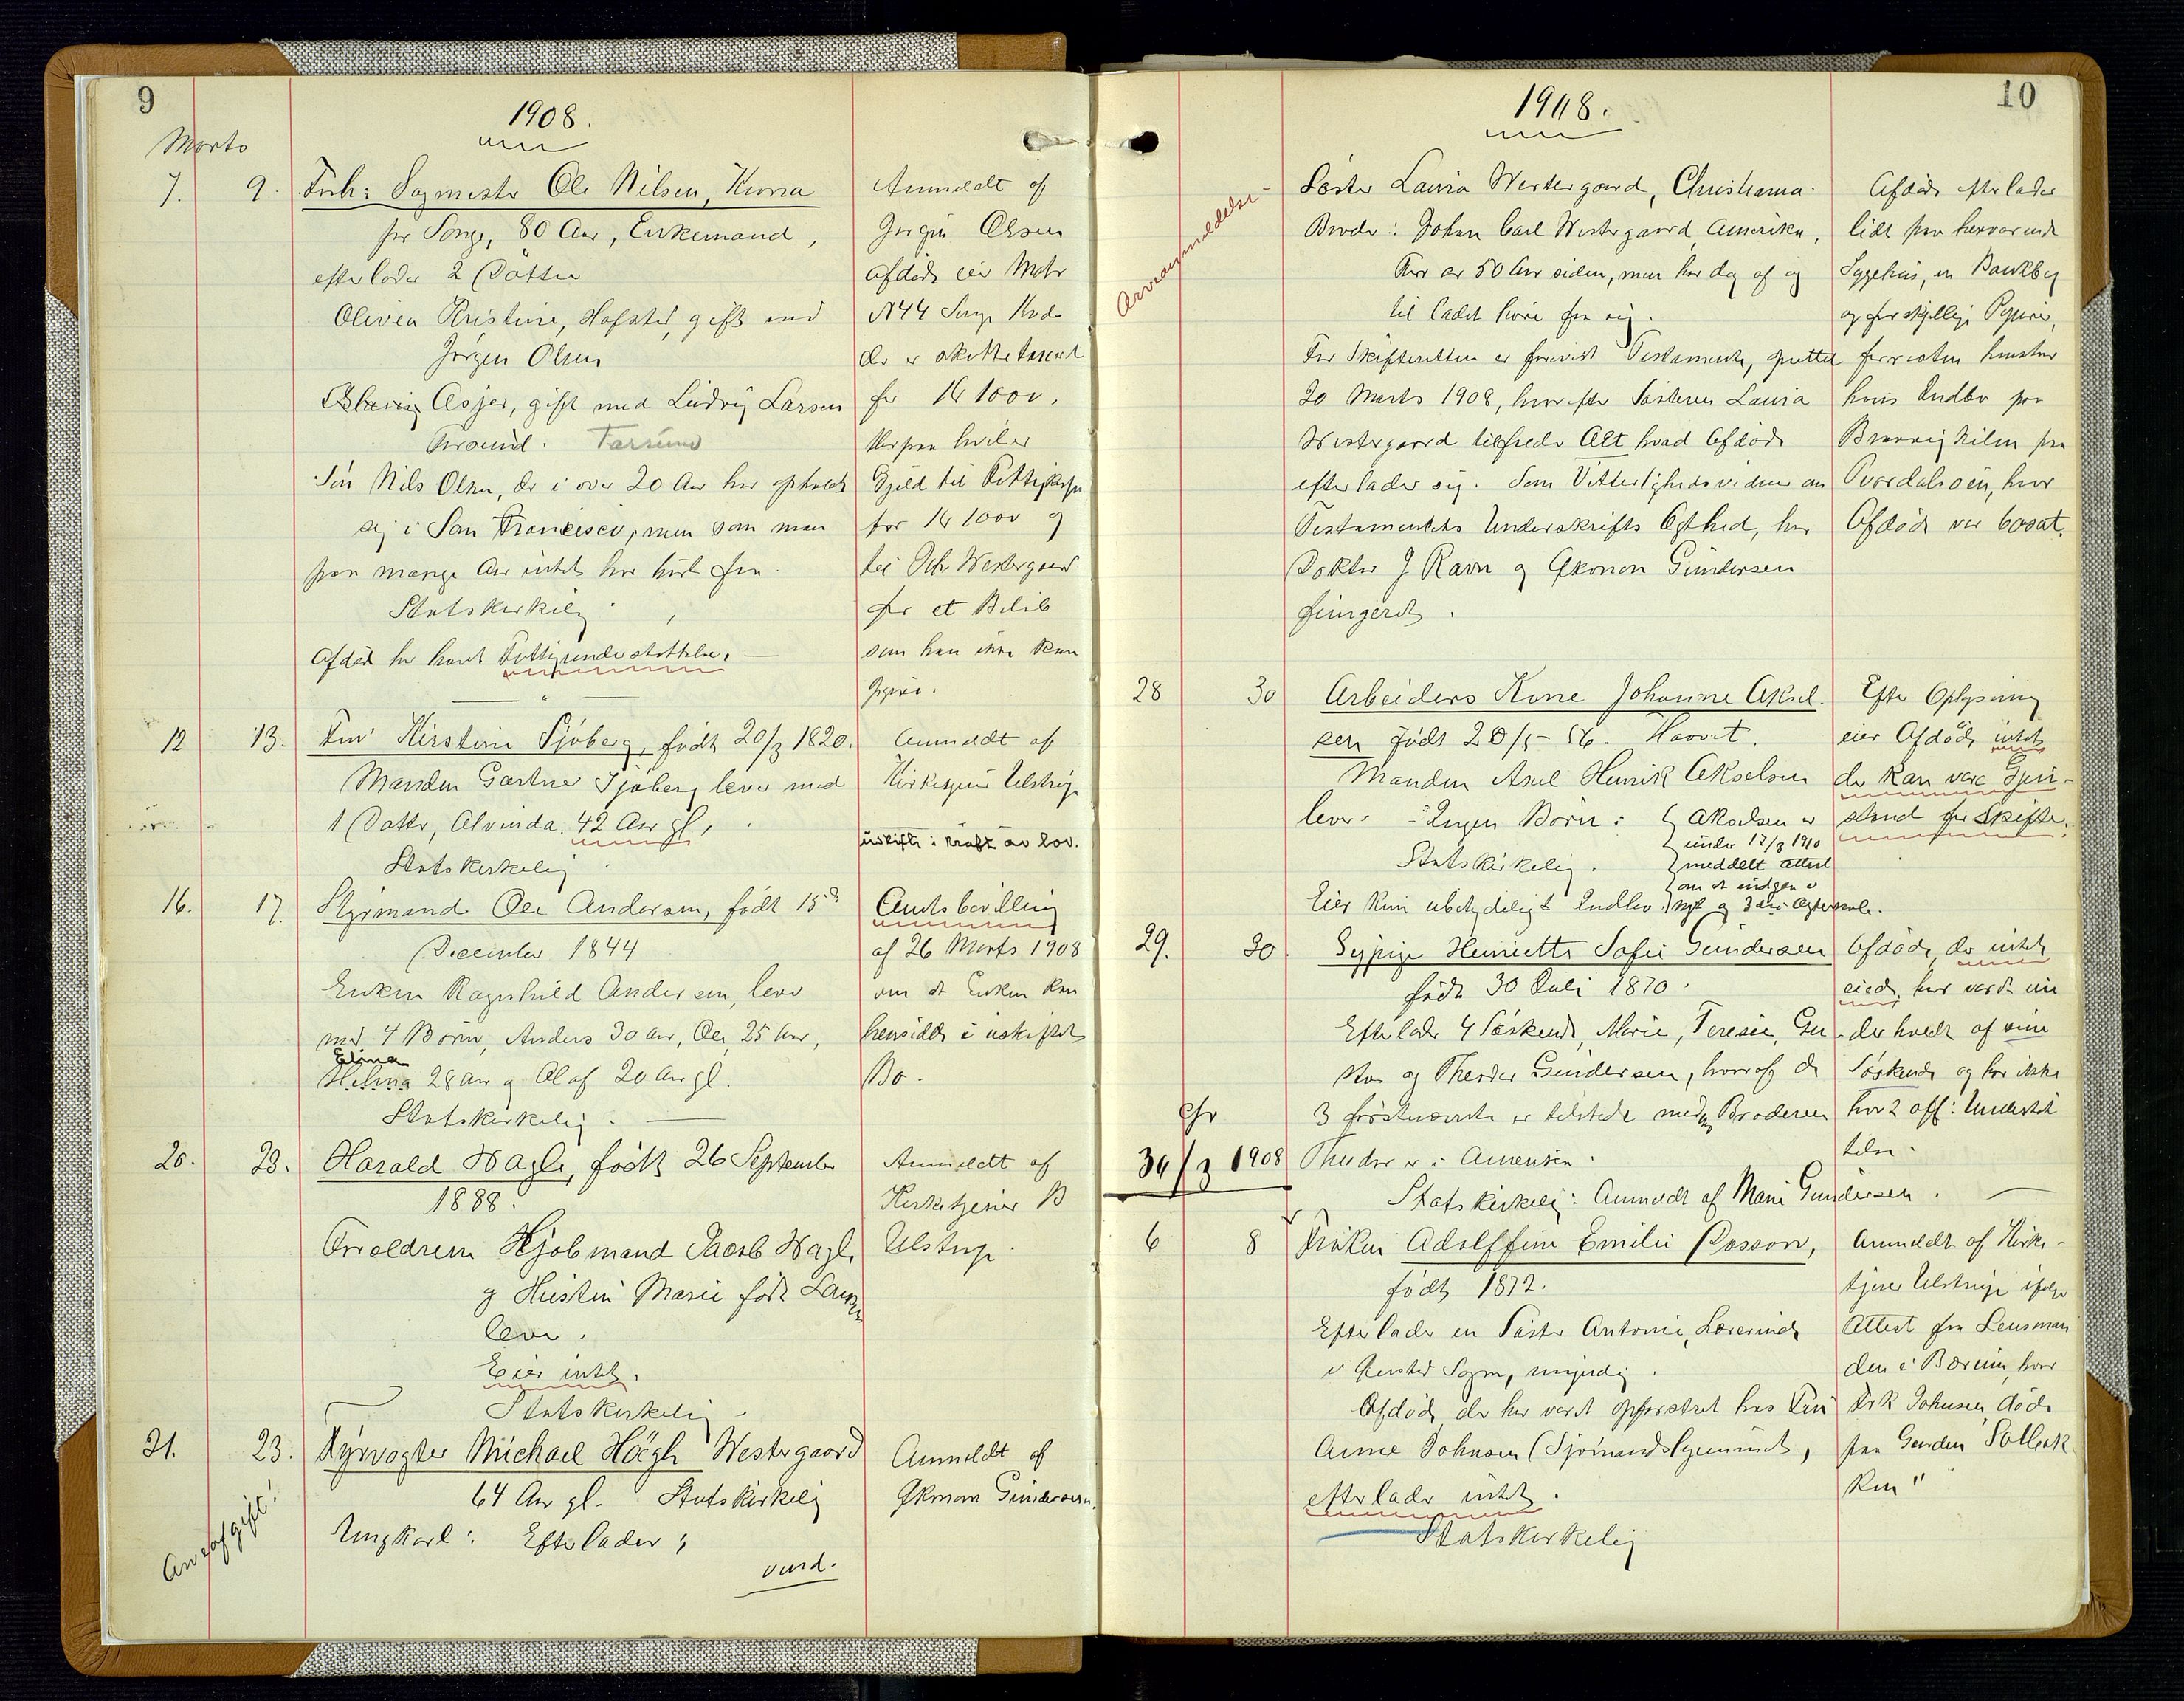 9
1908.
Marts
7. 9. Forh: Sagmester Ole Nilsen, Kona
pr Songe, 80 Aar, Enkemand,
efterlader 2 Døttre
Olivea Kristine, Hofsted, gift med
Jørgen Olsen
Asjer, gift med Ludvig Larsen
Tarsund
Søn Nils Olsen, der i over 20 Aar har opholdt
sig i San Francisco, men som man
paa mange Aar intet har hørt fra.
Statskirkelig
Afdøde har havt Fattigunderstøttelse.
Anmeldt af
Jørgen Olsen
Afdøde eier Matr
N 44 Songe
der er skattetaxeret
for Kr 1000.
Herpaa hviler
Gjeld til Fattigkassen
for Kr 1000 og
til Westergaard
for et Beløb
som han ikke kan
opgive.
12 13. Fru Kirstine Sjöberg, født 20/3 1820.
Manden Gartner Sjöberg lever med
1 Datter, Alvinda 42 Aar gl,
Statskirkelig
Anmeldt af
Kirketjener Ulstrup
uskifte i kraft av lov.
16. 17. Styrmand Ole Andersen, født 15de
December 1844
Enken Ragnhild Andersen, lever
med 4 Børn, Anders 30 Aar, Ole 25 Aar,
Elina
Helina 28 Aar og Olaf 20 Aar gl.
Statskirkelig.
Amtsbevilling
af 26 Marts 1908
om at Enken kan
hensidde i uskiftet
Bo.
20. 23. Harald Hagle, født 26 September
1888.
Forældrene Kjøbmand Jacob Hagle
og Hustru Marie født Larsen
lever.
Eier intet.
Statskirkelig
Anmeldt af
Kirketjener B
Ulstrup.
21. 23. Fyrvogter Michael Høegh Westergaard
64 Aar gl. Statskirkelig
Ungkarl: Efterlader;
vend.
Arveafgift!
Anmeldt af
Økonom Gundersen.
10
1908.
Arveanmeldelse
Søster Laura Westergaard, Christiania.
Broder: Johan Carl Westergaard Amerika,
for 50 Aar siden, men har dog af og
til ladet høre fra sig.
For Skifteretten er forevist Testamente, oprettet
20 Marts 1908, hvorefter Søsteren Laura
Westergaard tilfreder Alt hvad Afdøde
efterlader sig. Som Vitterlighedsvidner om
Testamentets Underskrifts Ægthed, har
Doktor J Ravn og Økonom Gundersen
fungeret.
Afdøde efterlader
lidt paa herværende
Sygehus, en Bankbog
og forskjellige Papirer,
forresten henstaar
hans Indbo paa
Brevigkilen paa
Tverdalsøen, hvor
Afdøde var bosat.
28 30 Arbeiders Kone Johanne Aksel-
sen født 20/5- 56. Haavet.
Manden Axel Henrik Akselsen
lever. Ingen Børn: Akselsen er
under 17/3 1910
Statskirkelig. meddelt attest
om at indgaa
Eier kun ubetydeligt Indbo. nyt og 3die Ægteskab.
Efter Oplysning
eier Afdøde intet
der kan være Gjen-
stand for Skifte.
29. 30 Sypige Henriette Sofie Gundersen
født 30 Juli 1870.
Efterlader 4 Søskende, Marie, Teresie, Gu-
stav og Theodor Gundersen, hvoraf de
3 førstnævnte er tilstede medens Broderen
Theodor er i Amerika.
Statskirkelig: Anmeldt af Marie Gundersen.
Afdøde, der intet
eiede, har været un-
derholdt af sine
Søskende og har ikke
havt off: Understøt-
telse.
Chr
30/3 1908
6 8 Frøken Adolffine Emilie Rosson,
født 1872.
Efterlader en Søster Antonie, Lærerinde
i Gjersted Sogn, myndig.
Afdøde, der har været opfostret hos Fru
Anne Johnsen (Sjømandshjemmet,
efterlader intet.
Statskirkelig
Anmeldt af Kirke-
tjener Ulstrup ifølge
Attest fra Lensman
den i Bærum, hvor
Frk Johnsen døde
paa Gaarden Solbak
ken"